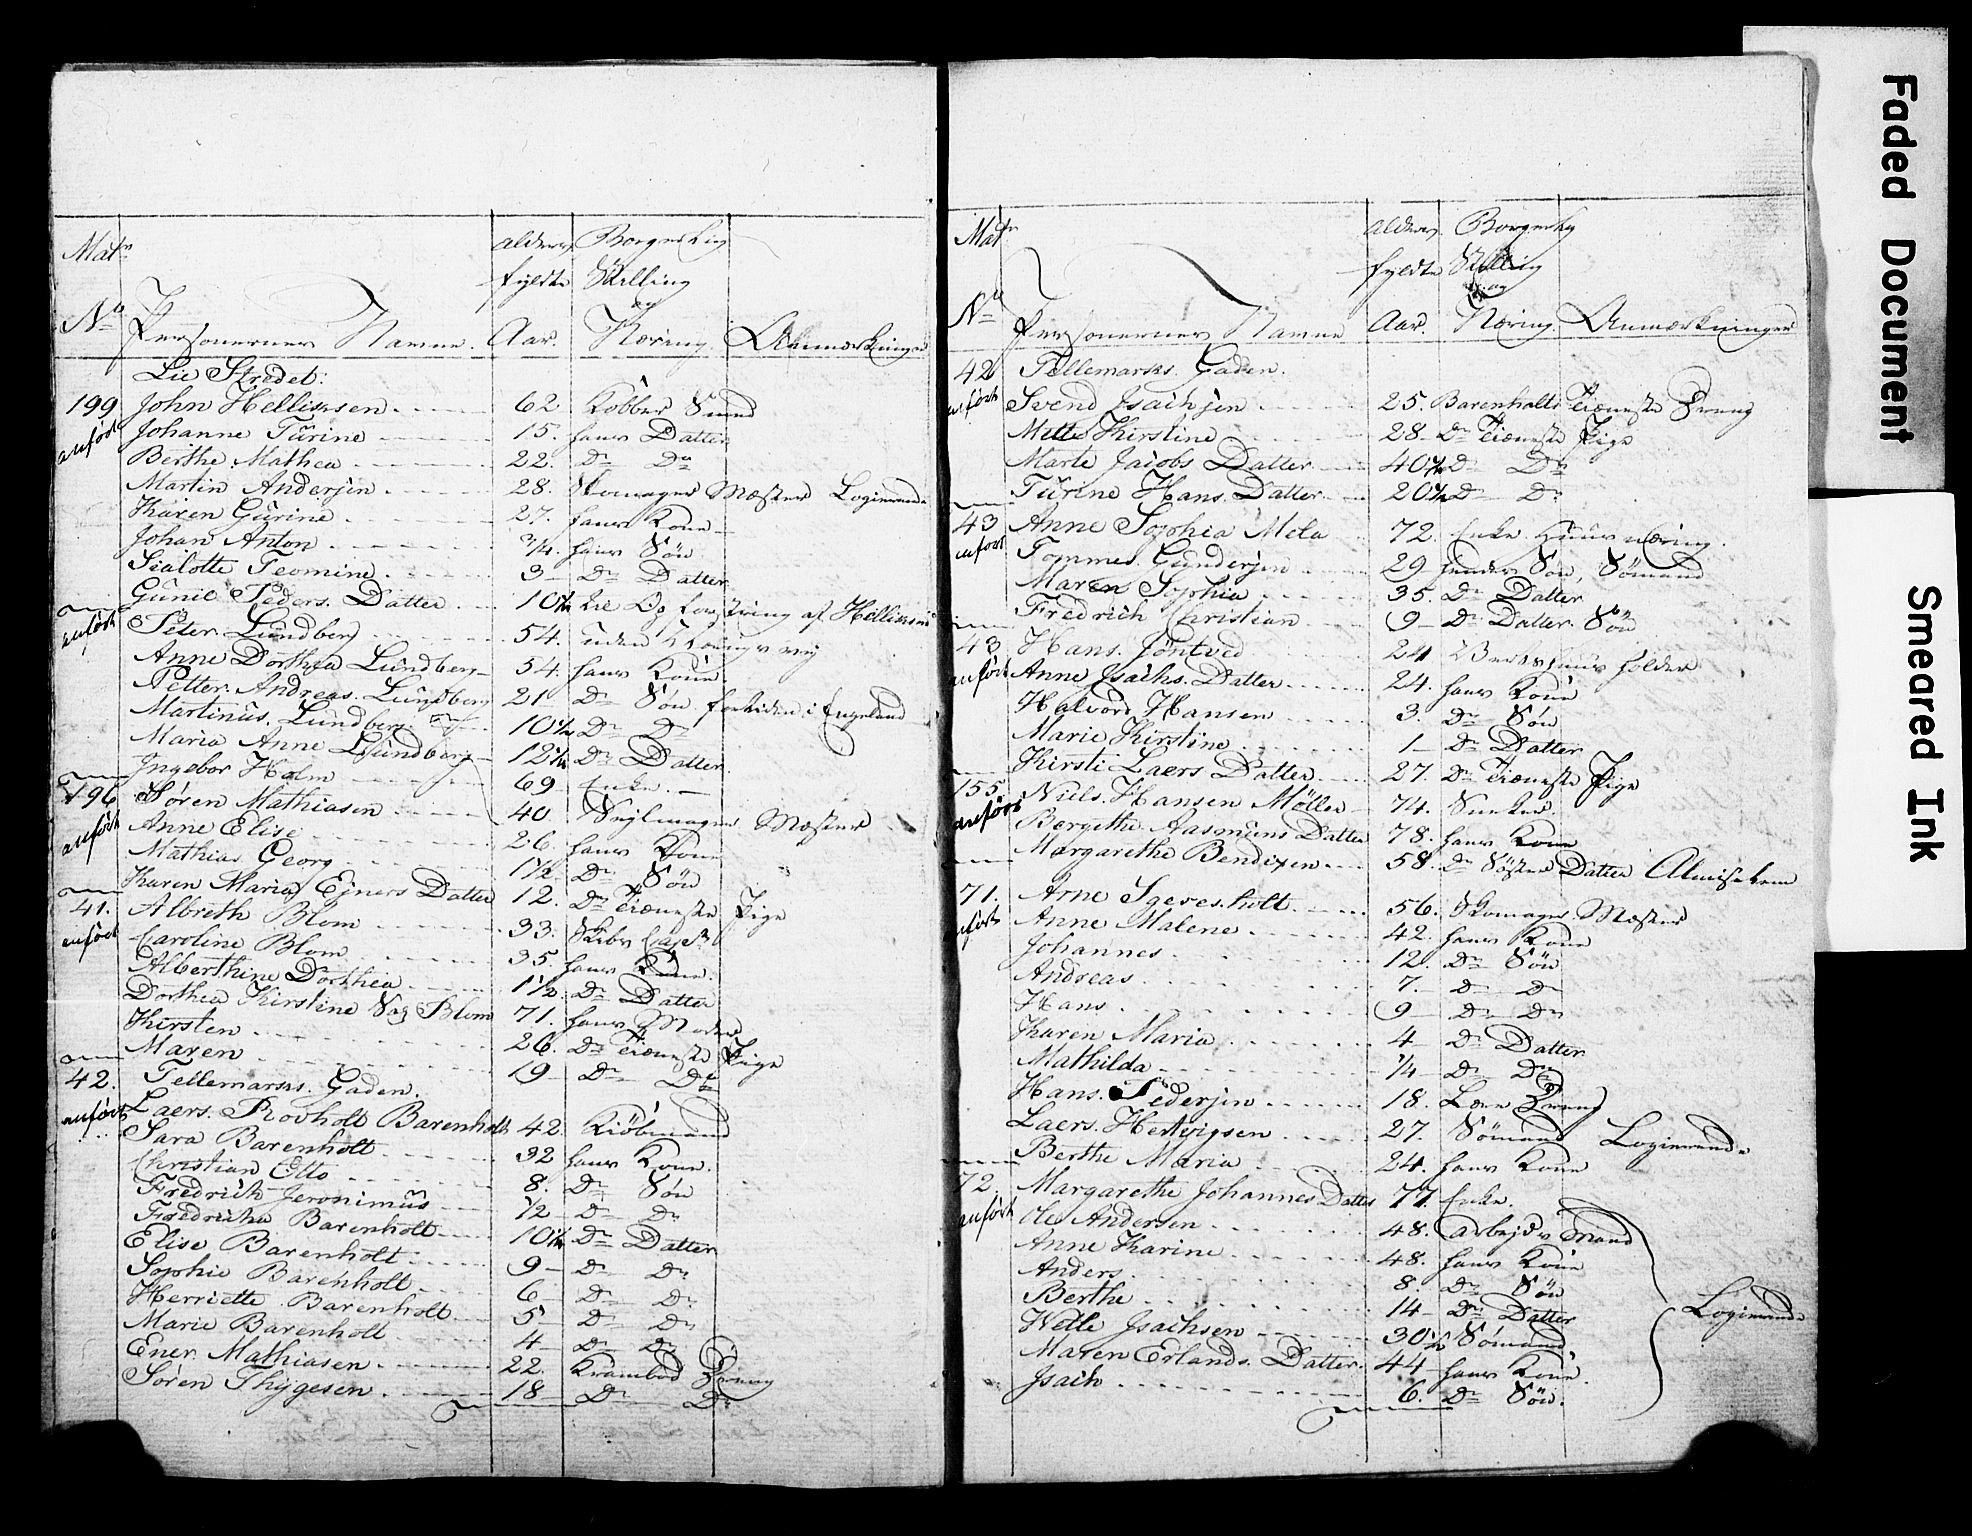 Matr No Personernes Navne. Alder fyldte Aar. Borgerlig Stilling og Næring. Anmærkninger
Lie Strædet:
199 anført John Hellissen 62 Kobber Smed
Johanne Turine 15. hans Datter
Berthe Mathea 22. Do Do
Martin Andersen 28. Skomager Mæster Logierende
Karen Gurine 27. hans Kone
Johan Anton 3/4. hans Søn
Sialotte Teomine 3 Do Datter
Gunil Peders Datter 10 1/2 af Hellissen
anført Peter Lundberg 54. uden
Anne Dorthea Lundberg 54. hans Kone
Petter Andreas Lundberg 21 Do Søn for tiden i Engeland
Martinus Lundberg 10 1/2 Do Do
Maria Anne Lundberg 12 1/2 Do Datter
Ingebor Holm 69 Enke
196 anført Søren Mathiasen 40 Sejlmager Mæster
Anne Elise 26. hans Kone
Mathias Georg 1 1/2 Do Søn
Karen Maria Ejners Datter 12. Do Tieneste Pige
41. anført Albreth Blom 33. Skibs Capt
Caroline Blom 35. hans Kone.
Alberthine Dorthea 1 1/2 Do Datter
Dorthea Kirstine Sag Blom 71. hans Moder
Kirsten 26. Do Tieneste Pige
Maren 19 Do Do
42. Tellemarks Gaden.
anført Laers Rovholt Barenholt 42. Kiøbmand
Sara Barenholt 32 hans Kone.
Christian Otto 8. Do Søn
Fredrich Jeronimus 1/2 Do Do
Fredricha Barenholt 10 1/2 Do Datter
Elise Barenholt 9 Do Do
Sophie Barenholt 6 Do Do
Herriette Barenholt 5 Do Do
Marie Barenholt 4 Do Do
Ener Mathiasen 22. Krambod Dreng
Søren Thygesen 18 Do Do
Matr No Personernes Navne Alder fyldte Aar. Borgerlig Stilling og Næring. Anmærkninger
42 Tellemarks Gaden.
anført Svend Isachsen 25. Barenholts Tieneste Dreng
Mette Kirstine 28. Do Tieneste Pige
Marte Jacobs Datter 40 1/2 Do Do
Turine Hans Datter 20 1/2 Do Do
43 anført Anne Sophia Mela 72. Enke Huus næring.
Tommes Gundersen 29 hendes Søn, Sømand
Maren Sophia 35 Do Datter
Fredrich Christian 9 Do Datter Søn
43 anført Hans Jontved 24 Vertshuus holder
Anne Isachs Datter 24. hans Kone
Halvord Hansen 3. Do Søn
Marie Kirstine 1 Do Datter
Kirsti Laers Datter 27. Do Tieneste Pige
155 anført Niels Hansen Møller 74. Snecker
Bergethe Aasmuns Datter 78. hans Kone
Margarethe Bendixen 58. Do Søster Datter Almisselem
71. anført Arne Sgeresholt 56. Skomager Mæster
Anne Malene 42. hans Kone
Johannes 12. Do Søn
Andreas 7. Do Do
Hans 9 Do Do
Karen Maria 4 Do Datter
Mathilda 1/4 Do Do
Hans Pedersen 18. Lære Dreng
Laers Hertvigsen 27. Sømand Logierende
Berthe Maria 24. hans Kone
72 anført Margarethe Johannes Datter 77. Enke.
Ole Andersen 48. Arbejds Mand
Anne Karine 48. hans Kone
Anders 8. Do Søn
Berthe 14 Do Datter Logierende
Wetle Isachsen 30 1/2 Sømand
Maren Erlands Datter. 44 hans Kone.
Isach 6. Do Søn.
Faded Document
Smeared Ink